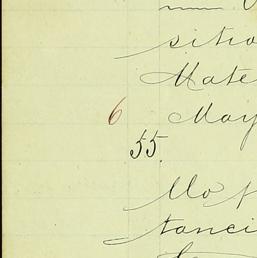 sitio
Mate
6 May
55.
Mo f
tanci